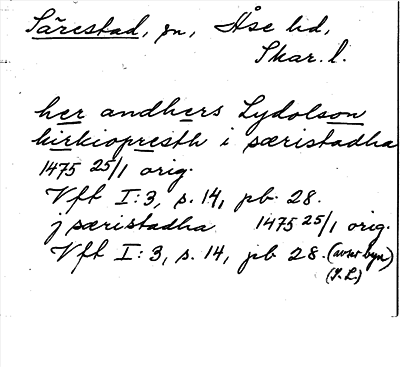 Särestad, sn, Åse hd,
Skar. l.
her andhers Lydolson
kirkiopresth i særistadha
1475 25/1 orig.
Vft I:3, s. 14, pb. 28.
j særistadha 1475 25/1 orig.
Vft I:3, s. 14, pb 28. (avser byn)
(I. L.)